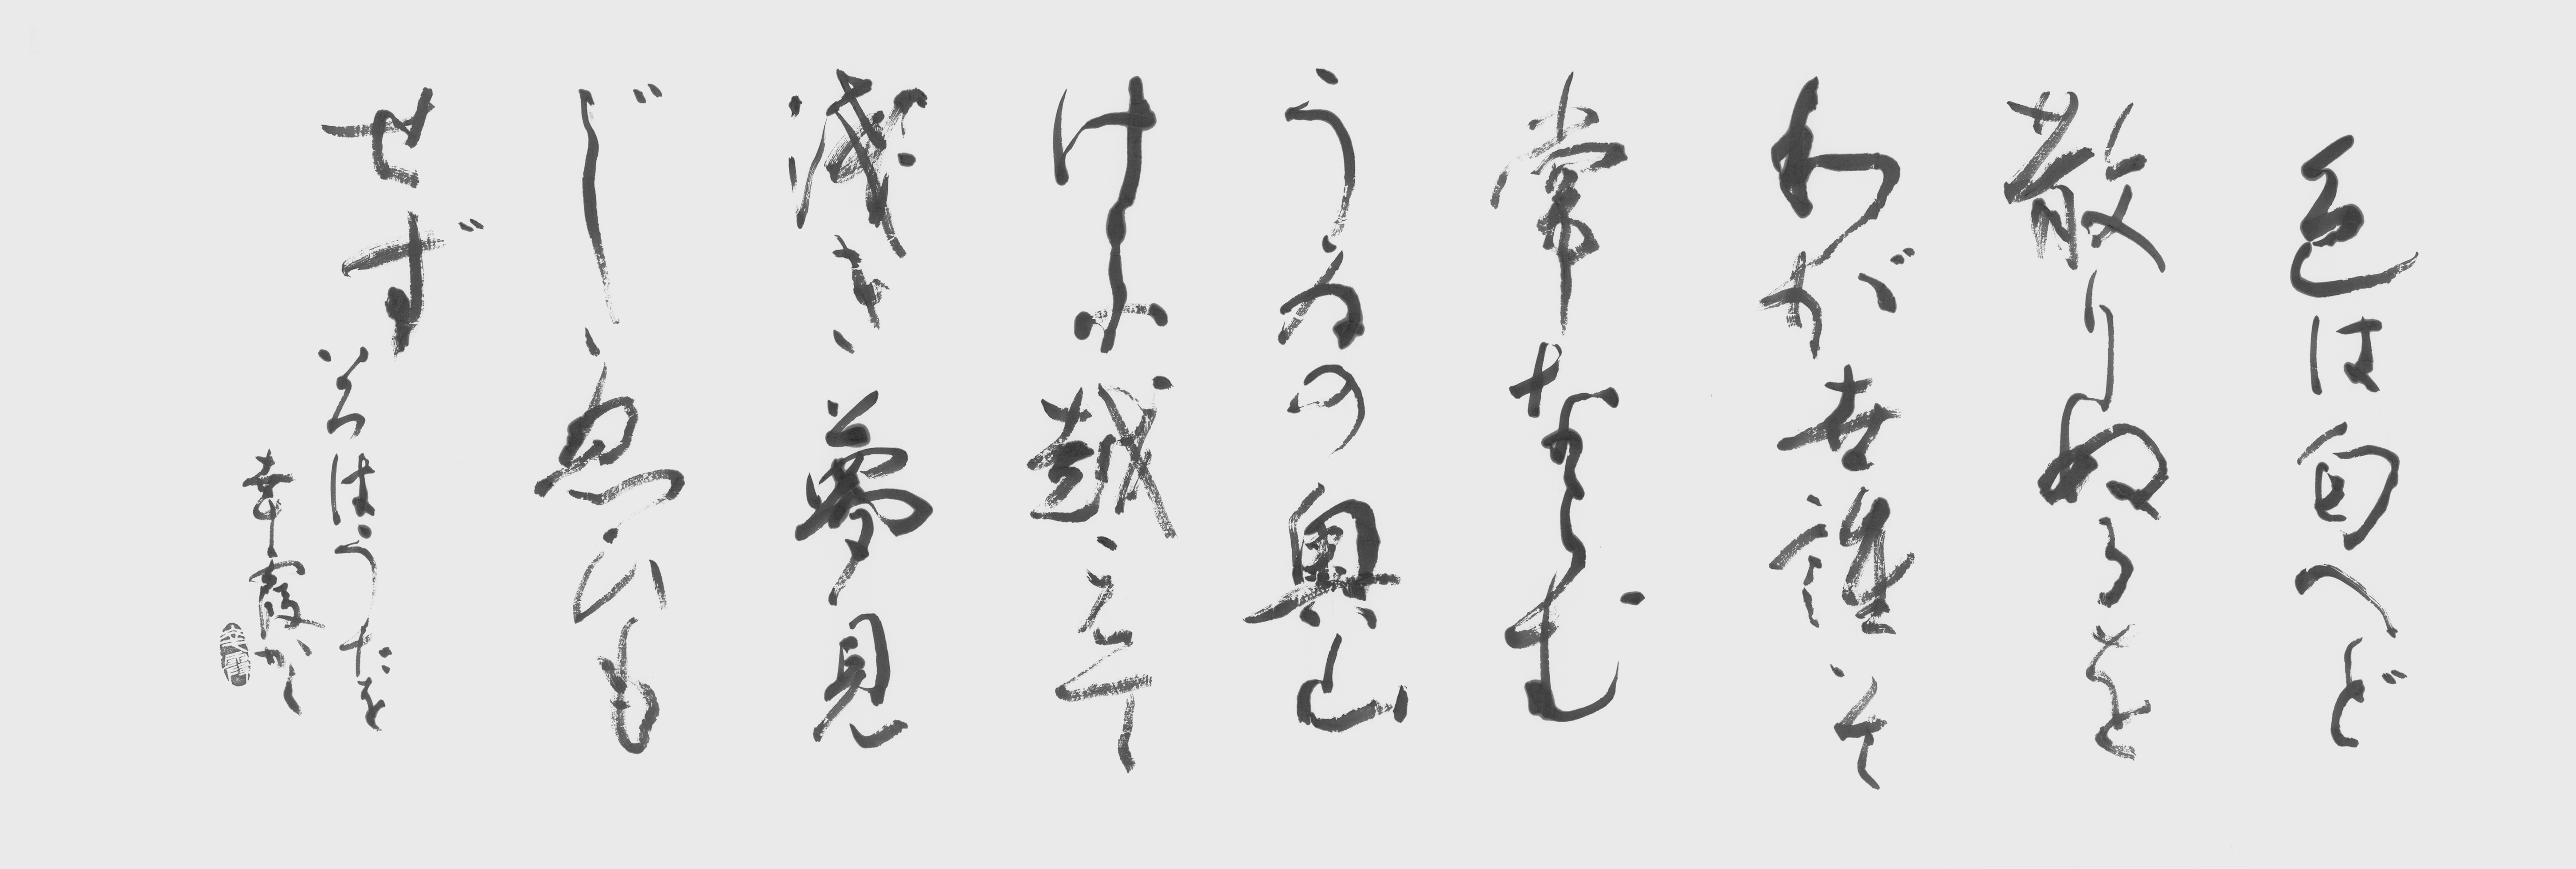 色は匂へど
散りぬるを
わが世誰そ
常ならむ
うゐの奥山
けふ越えて
浅き夢見
じ、ゑひも
せず
いろはうたを
幸霞かく